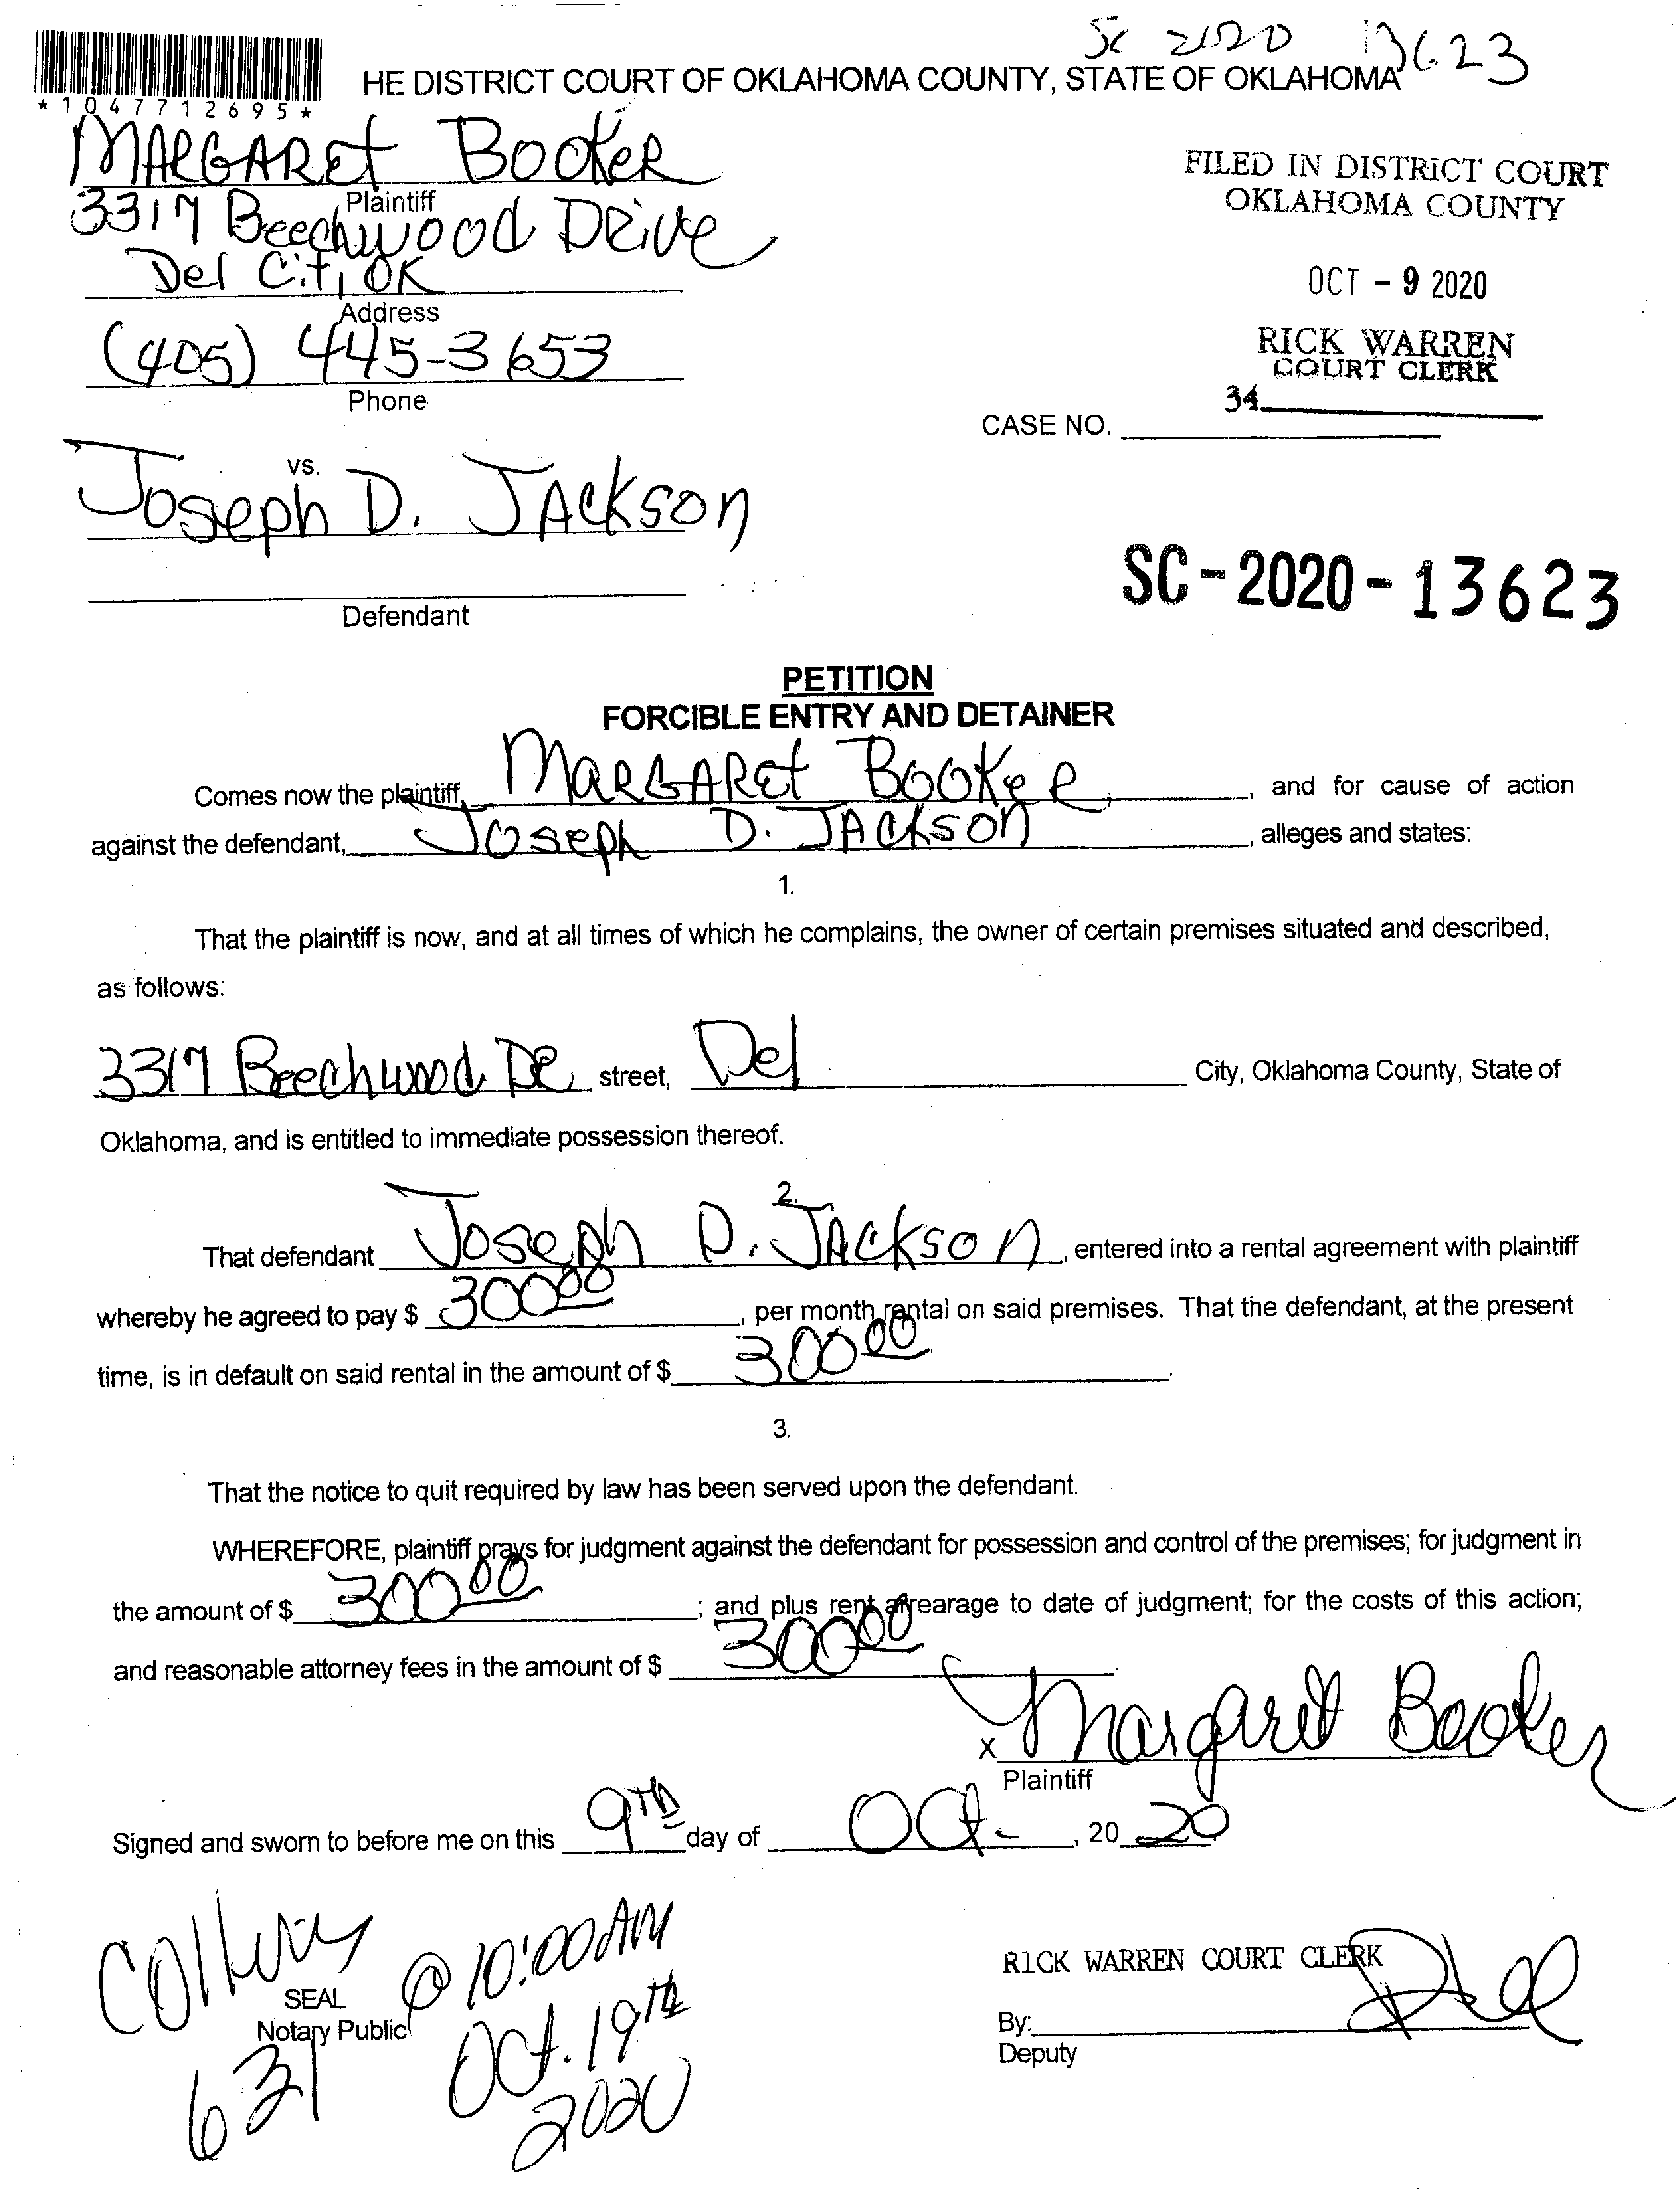 SC 2020 13623
HE DISTRICT COURT OF OKLAHOMA COUNTY, STATE OF OKLAHOMA
*1047712695*
MARGARET BOOKER
Plaintiff
3317 Beechwood DRive
Del City OK
Address
(405) 445-3653
Phone
FILED IN DISTRICT COURT
OKLAHOMA COUNTY
OCT - 9 2020
RICK WARREN
COURT CLERK
34
CASE NO.
vs.
Joseph D. JACKSON
Defendant
SC-2020-13623
PETITION
FORCIBLE ENTRY AND DETAINER
Comes now the plaintiff, MARGARET BOOKER, and for cause of action
against the defendant, Joseph D. JACKSON, alleges and states:
1.
That the plaintiff is now, and at all times of which he complains, the owner of certain premises situated and described,
as follows:
3317 Beechwood DR street, Del City, Oklahoma County, State of
Oklahoma, and is entitled to immediate possession thereof.
2.
That defendant Joseph D. JACKSON, entered into a rental agreement with plaintiff
whereby he agreed to pay $ 300 00, per month rental on said premises. That the defendant, at the present
time, is in default on said rental in the amount of $ 300 00.
3.
That the notice to quit required by law has been served upon the defendant.
WHEREFORE, plaintiff prays for judgment against the defendant for possession and control of the premises; for judgment in
the amount of $ 300 00; and plus rent arrearage to date of judgment; for the costs of this action;
and reasonable attorney fees in the amount of $ 300 00.
x Margaret Booker
Plaintiff
Signed and sworn to before me on this 9TH day of Oct, 20 20
@ 10:00 AM
SEAL
Notary Public
Oct. 19th
2020
631
RICK WARREN COURT CLERK
By:
Deputy